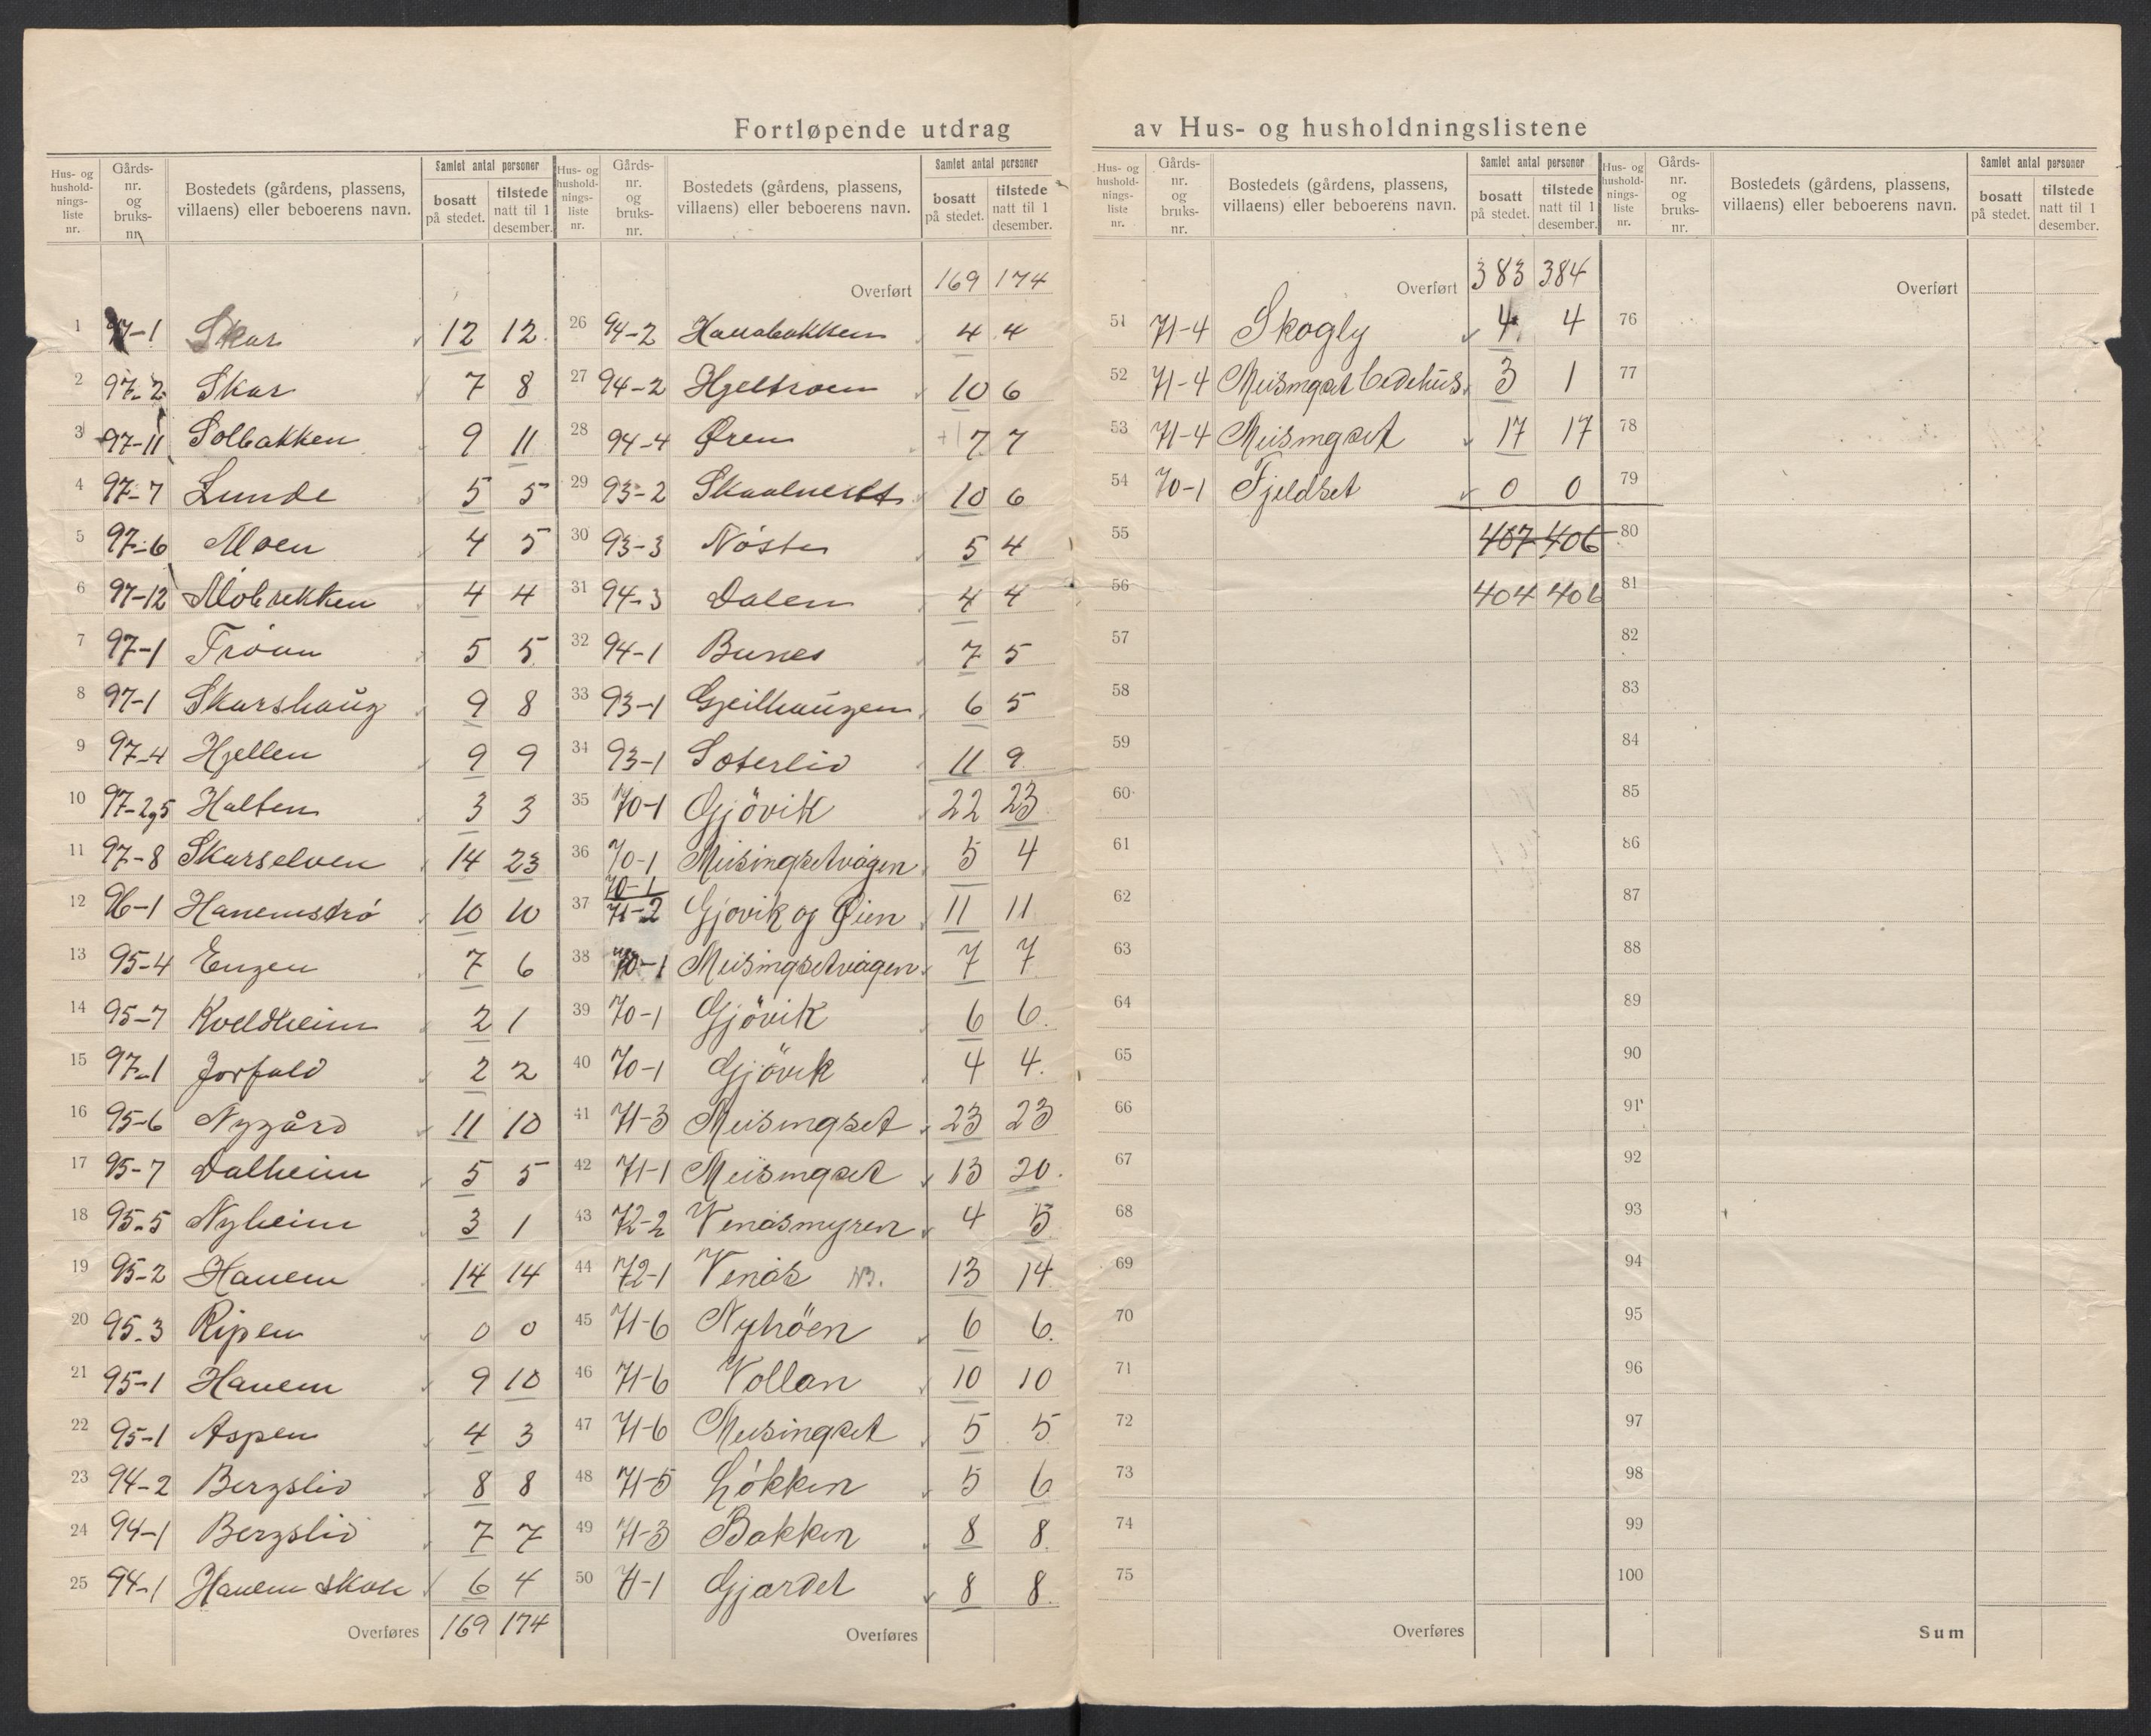 Fortløpende utdrag av Hus- og husholdningslistene
Hus- og husholdnings-liste nr. | Gårds-nr. og bruks-nr. | Bostedets (gårdens, plassens, villaens) eller beboerens navn. | Samlet antal personer bosatt på stedet. | tilstede natt til 1 desember.
1 97-1 Skar 12 12
2 97-2 Skar 7 8
3 97-11 Solbakken 9 11
4 97-7 Lunde 5 5
5 97-6 Moen 4 5
6 97-12 Mobrekken 4 4
7 97-1 Trøan 5 5
8 97-1 Skarshaug 9 8
9 97-4 Hjellen 9 9
10 97-2,5 Halten 3 3
11 97-8 Skarselven 14 23
12 96-1 Hanemstrø 10 10
13 95-4 Engen 7 6
14 95-7 Kveldheim 2 1
15 97-1 Jorfald 2 2
16 95-6 Nygård 11 10
17 95-7 Dalheim 5 5
18 95-5 Nyheim 3 1
19 95-2 Hanem 14 14
20 95-3 Ripen 0 0
21 95-1 Hanem 9 10
22 95-1 Aspen 4 3
23 94-2 Bergsliv 8 8
24 94-1 Bergsliv 7 7
25 94-1 Hanem skole 6 4
Overføres 169 174
Hus- og husholdnings-liste nr. | Gårds-nr. og bruks-nr. | Bostedets (gårdens, plassens, villaens) eller beboerens navn. | Samlet antal personer bosatt på stedet. | tilstede natt til 1 desember.
Overført 169 174
26 94-2 4 4
27 94-2 Hjeltroen 10 6
28 94-4 Øren +1 7 7
29 93-2 10 6
30 93-3 Nöster 5 4
31 94-3 Dalen 4 4
32 94-1 Bunes 7 5
33 93-1 Gjeilhaugen 6 5
34 93-1 Soterlid 11 9
35 70-1 Gjövik 22 23
36 70-1 Meisingsetvågen 5 4
70-1
37 71-2 Gjøvik og Øien 11 11
38 70-1 Meisingsetvågen 7 7
39 70-1 Gjövik 6 6.
40 70-1 Gjövik 4 4.
41 71-3 Meisingset 23 23
42 71-1 Meisingset 13 20.
43 72-2 Venåsmyren 4 5
44 72-1 Venås 13 14
45 71-6 Nyhöen 6 6.
46 71-6 Vollan 10 10
47 71-6 Meisingset 5 5
48 71-5 Løkken 5 6
49 71-3 Bakken 8 8.
50 71-1 Gjærdet 8 8.
Overføres
Hus- og husholdnings-liste nr. | Gårds-nr. og bruks-nr. | Bostedets (gårdens, plassens, villaens) eller beboerens navn. | Samlet antal personer bosatt på stedet. | tilstede natt til 1 desember.
Overført 383 384
51 71-4 Skogly 4 4
52 71-4 Meisingset bedehus 3 1
53 71-4 Meisingset 17 17
54 70-1 Fjeldset 0 0
55 407 406
56 404 406
57
58
59
60
61
62
63
64
65
66
67
68
69
70
71
72
73
74
75
Overføres
Hus- og husholdnings-liste nr. | Gårds-nr. og bruks-nr. | Bostedets (gårdens, plassens, villaens) eller beboerens navn. | Samlet antal personer bosatt på stedet. | tilstede natt til 1 desember.
Overført
76
77
78
79
80
81
82
83
84
85
86
87
88
89
90
91
92
93
94
95
96
97
98
99
100
Sum